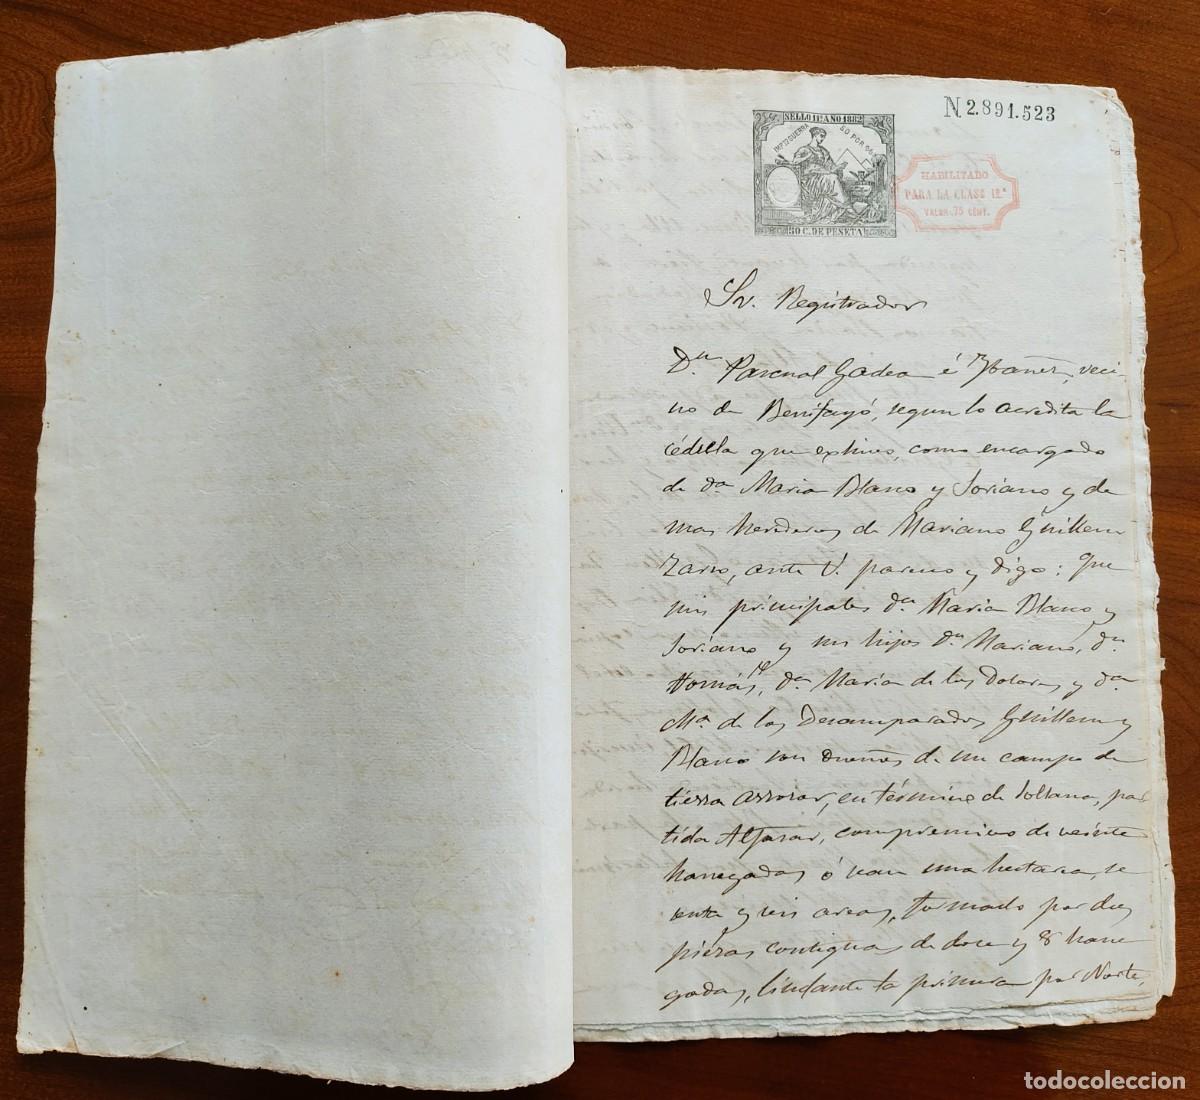 N 2.891.523
SELLO 11º AÑO 1882
IMPTO GUERRA 50 POR
50 C. DE PESETA
HABILITADO
PARA LA CLASE 12.ª
VALOR 75 CENT.
Sr. Registrador
Dn. Pascual Gadea é Ybañez, veci-
no de Benifayó, segun lo acredita la
cédula que exhivo, como encargado
de da. Maria Blasco y Soriano y de
mas herederos de Mariano Guillem
Zarzo, ante V. parezco y digo: Que
mis principales da. Maria Blasco y
Soriano y sus hijos dn. Mariano, dn.
Tomás, da. Maria de los Dolores y da.
Ma. de los Desamparados Guillem y
Blasco son dueños de un campo de
tierra arrozar, en término de Sollana, par
tida Alfasar, comprensivo de veinte
hanegadas ó sean una hectarea, se
senta y seis areas, formado por dos
piezas contiguas de doce y 8 hane
gadas, lindante la primera por Norte,
todocoleccion